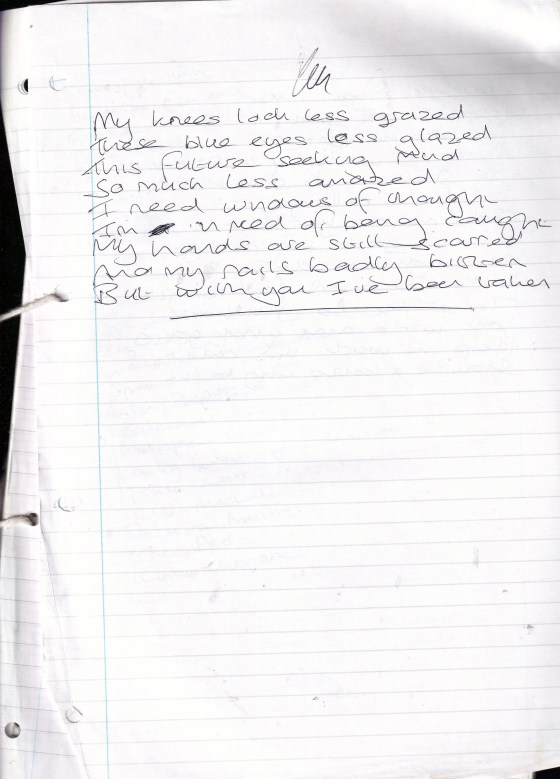 My knees look less grazed
These blue eyes less glazed
This future seeking mind
So much less amazed
I need windows of thought
Im in need of being caught
My hands are still scarred
And my nails badly bitten
But with you I've been taken